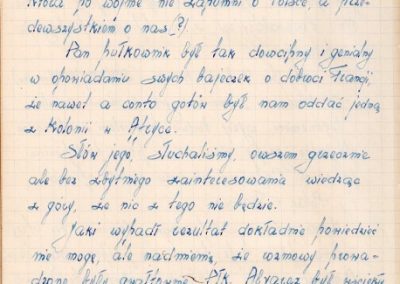 która po wojnie nie zapomni o Polsce, a prze-
dewszystkiem o nas (?)
Pan pułkownik był tak dowcipny i genialny
w opowiadaniu swych bajeczek o dobroci Francji,
że nawet a conto gotów był nam oddać jedną
z Kolonii w Afryce.
Słów jego, słuchaliśmy, owszem grzecznie
ale bez zbytniego zainteresowania wiedząc
z góry, że nic z tego nie będzie.
Jaki wypadł rezultat dokładnie powiedzieć
nie mogę, ale nadmienię, że rozmowy prowa-
dzone były gwałtownie - Płk. Alvarez był wściekły